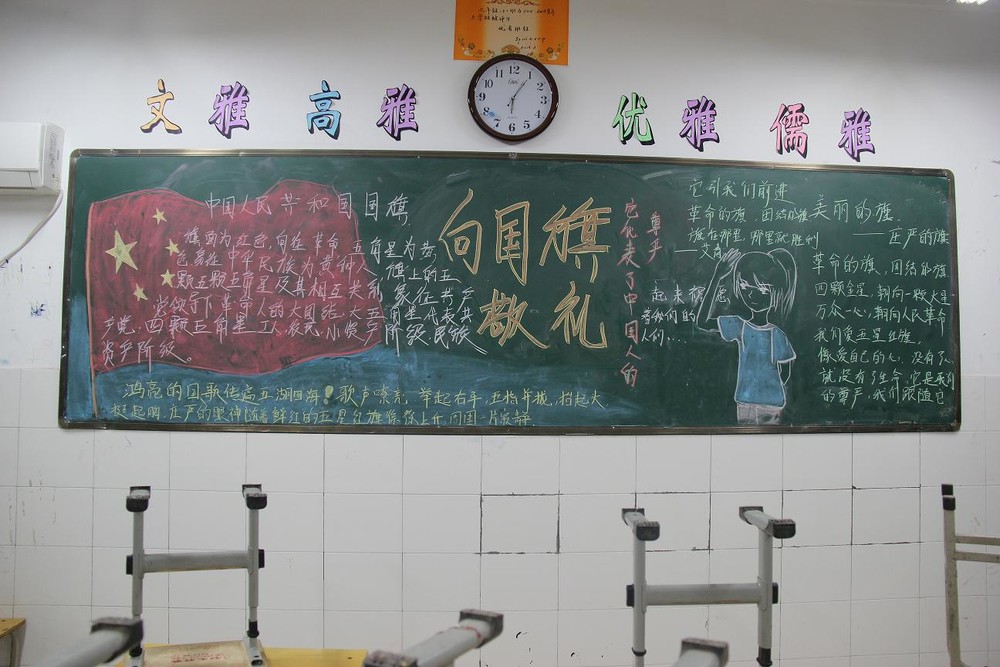 优秀班级
文雅 高雅 优雅 儒雅
12
1
2
3
4
5
6
7
8
9
10
11
中国人民共和国国旗
旗面为红色,向在革命 五角星为黄
色意在中华民族为黄种人 旗上的五
颗五颗五角星及其相互关系 象征共产
党领导下革命人的大团结.大五角星代表共
产党.四颗五角星工人.农民.小资产阶级.民族
资产阶级。
向国旗
敬礼
鸿亮的国歌传高五湖四海!歌声嘹亮,举起右手,五指并拢,抬起大
挺起胸,庄严的眼神随着鲜红的五星红旗
它代表了中国人的
尊严
起来
着我们的
人们...
它引我们前进
革命的旗、团结的旗
旗在哪里,哪里就胜利
——艾青
美丽的旗.
——庄严的旗
革命的旗,团结的旗
四颗金星,朝向一颗大星
万众一心,朝向人民革命
我们爱五星红旗.
像爱自己的心,没有了心
就没有了生命.它是我们
的尊严,我们跟随它